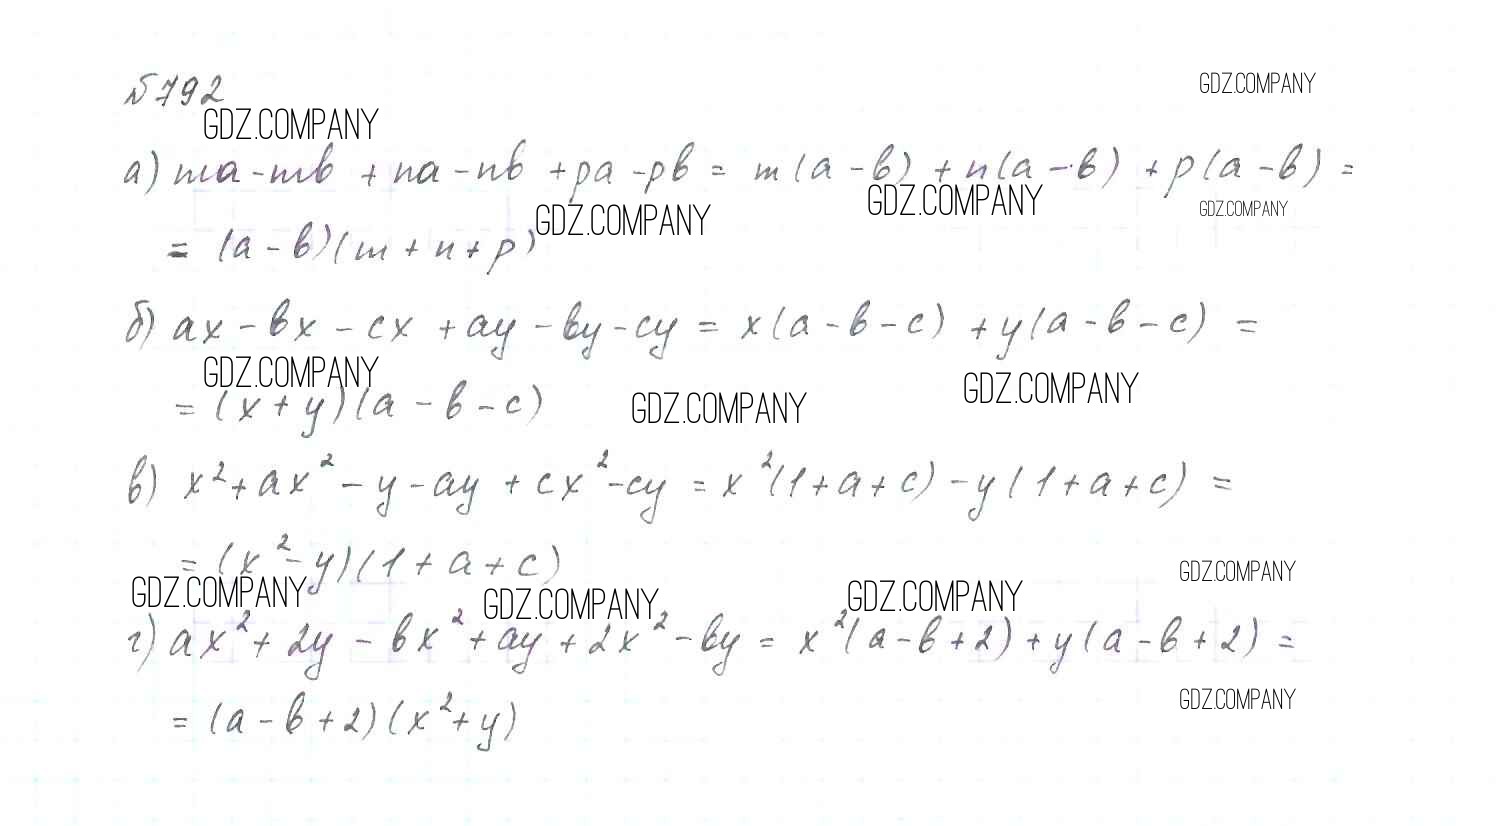 №792
GDZ.COMPANY
GDZ.COMPANY
а) ma - mb + na - nb + pa - pb = m(a - b) + n(a - b) + p(a - b) =
GDZ.COMPANY
GDZ.COMPANY
GDZ.COMPANY
= (a - b)(m + n + p)
б) ax - bx - cx + ay - by - cy = x(a - b - c) + y(a - b - c) =
GDZ.COMPANY
GDZ.COMPANY
GDZ.COMPANY
= (x + y)(a - b - c)
в) x² + ax² - y - ay + cx² - cy = x²(1 + a + c) - y(1 + a + c) =
= (x² - y)(1 + a + c)
GDZ.COMPANY
GDZ.COMPANY
GDZ.COMPANY
GDZ.COMPANY
г) ax² + 2y - bx² + ay + 2x² - by = x²(a - b + 2) + y(a - b + 2) =
GDZ.COMPANY
= (a - b + 2)(x² + y)